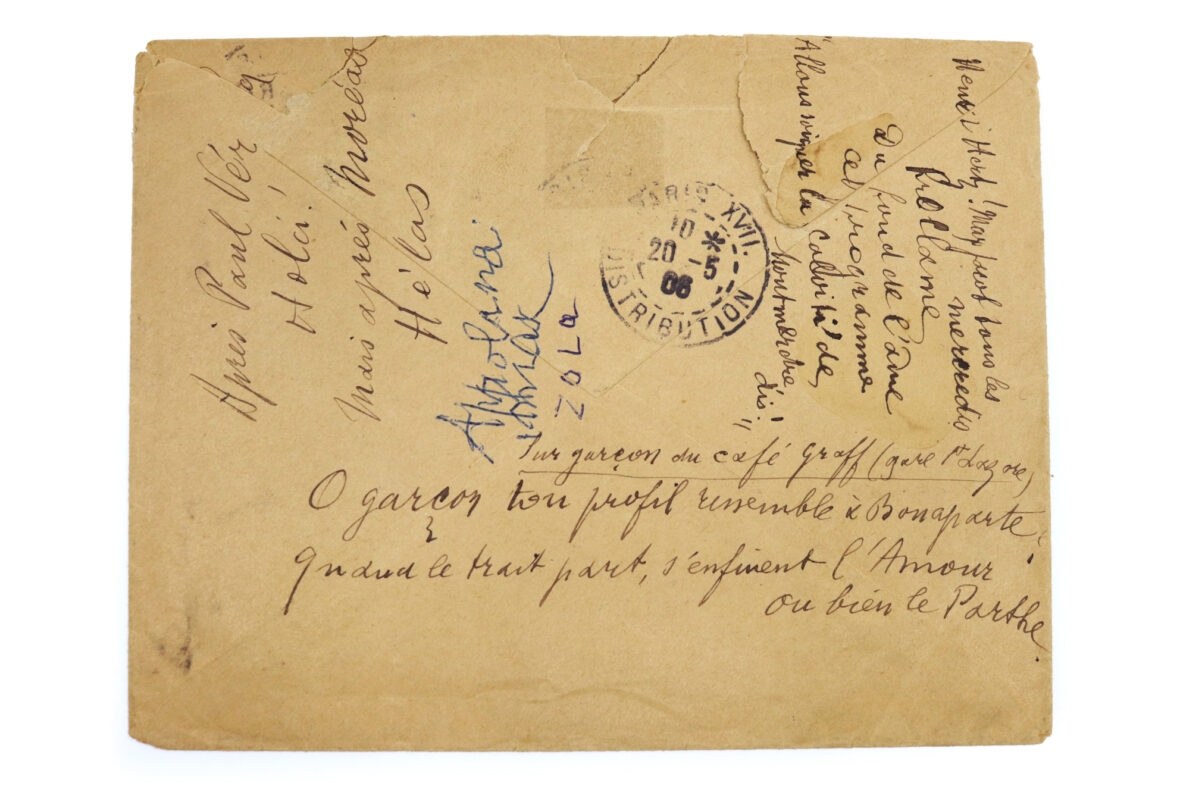 Après Paul Vér
Holà!
Mais après Moréas
Hélas
ZOLA
PARIS XVII.
10 *
20 - 5
06
DISTRIBUTION
Henri Hertz! Max Jacob tous les
mercredis
Proclame
Du fond de l'âme
ce programme
"Allons soigner la calvitie de
dis! "
Sur garçon du café Graff (gare St Lazare)
O garçon ton profil ressemble à Bonaparte
Quand le trait part, s'enfuient l'Amour
ou bien le Parthe.